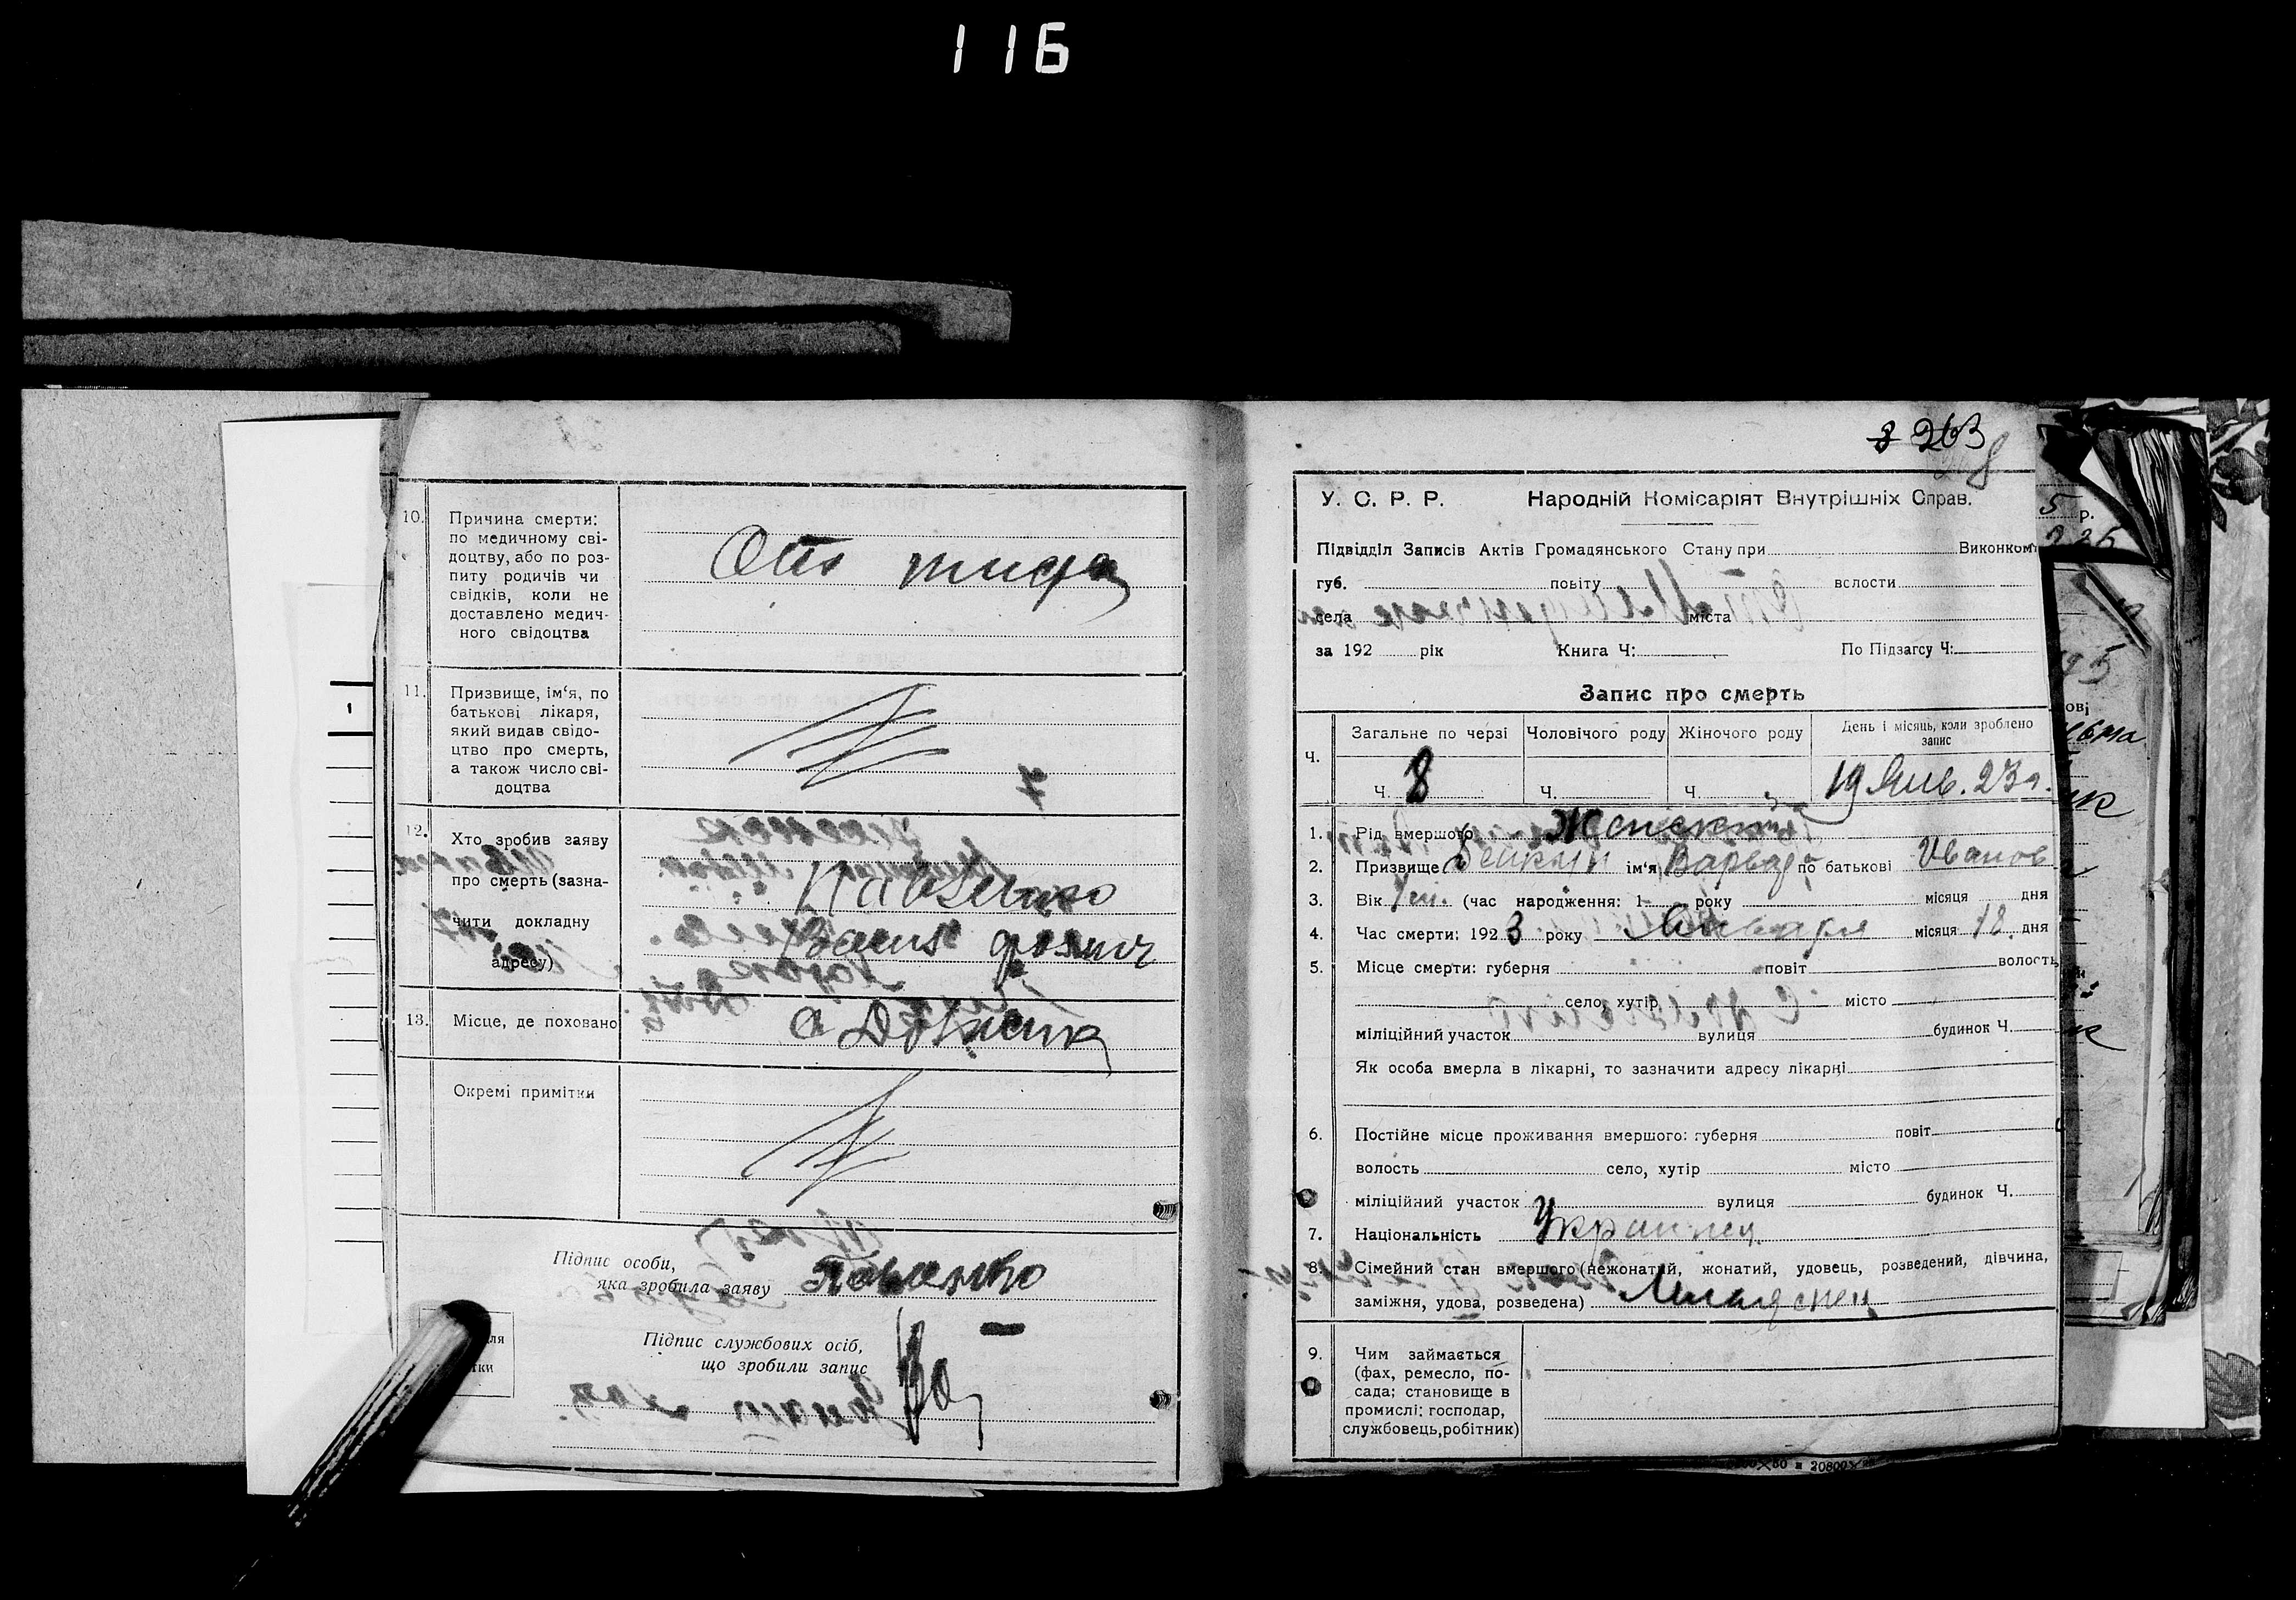 116
10.
Причина смерти:
по медичному сві-
доцтву, або по роз-
питу родичів чи
свідків, коли не
доставлено медич-
ного свідоцтва
Отъ тифа
11.
Призвище, ім‘я, по
батькові лікаря,
який видав свідо-
цтво про смерть,
а також число сві-
доцтва
12.
Хто зробив заяву
про смерть (зазна-
чити докладну
адресу)
Павленко
13.
Місце, де поховано
Окремі примітки
Підпис особи,
яка зробила заяву Павленко
Підпис службових осіб,
що зробили запис
263
8
У. С. Р. Р. Народній Комісаріят Внутрішніх Справ.
Підвідділ Записів Актів Громадянського Стану при Виконком
губ. повіту волости
села міста
за 192 рік Книга Ч: По Підзагсу Ч:
Запис про смерть
Ч.
Загальне по черзі Чоловічого роду Жіночого роду День і місяць, коли зроблено
запис
Ч. 8 Ч. Ч. 19 Янв. 23 г.
1. Рід вмершого Женский
2. Призвище ім‘я Варвар по батькові Иванов
3. Вік (час народження: 1 року місяця дня
4. Час смерти: 1923 року Января місяця 18 дня
5. Місце смерти: губерня повіт волость
село, хутір місто
міліційний участок вулиця будинок Ч.
Як особа вмерла в лікарні, то зазначити адресу лікарні
6. Постійне місце проживання вмершого: губерня повіт
волость село, хутір місто
міліційний участок вулиця будинок Ч.
7. Національність Украинец
8. Сімейний стан вмершого (нежонатий, жонатий, удовець, розведений, дівчина,
заміжня, удова, розведена) Младенец
9. Чим займається
(фах, ремесло, по-
сада; становище в
промислі: господар,
службовець, робітник)